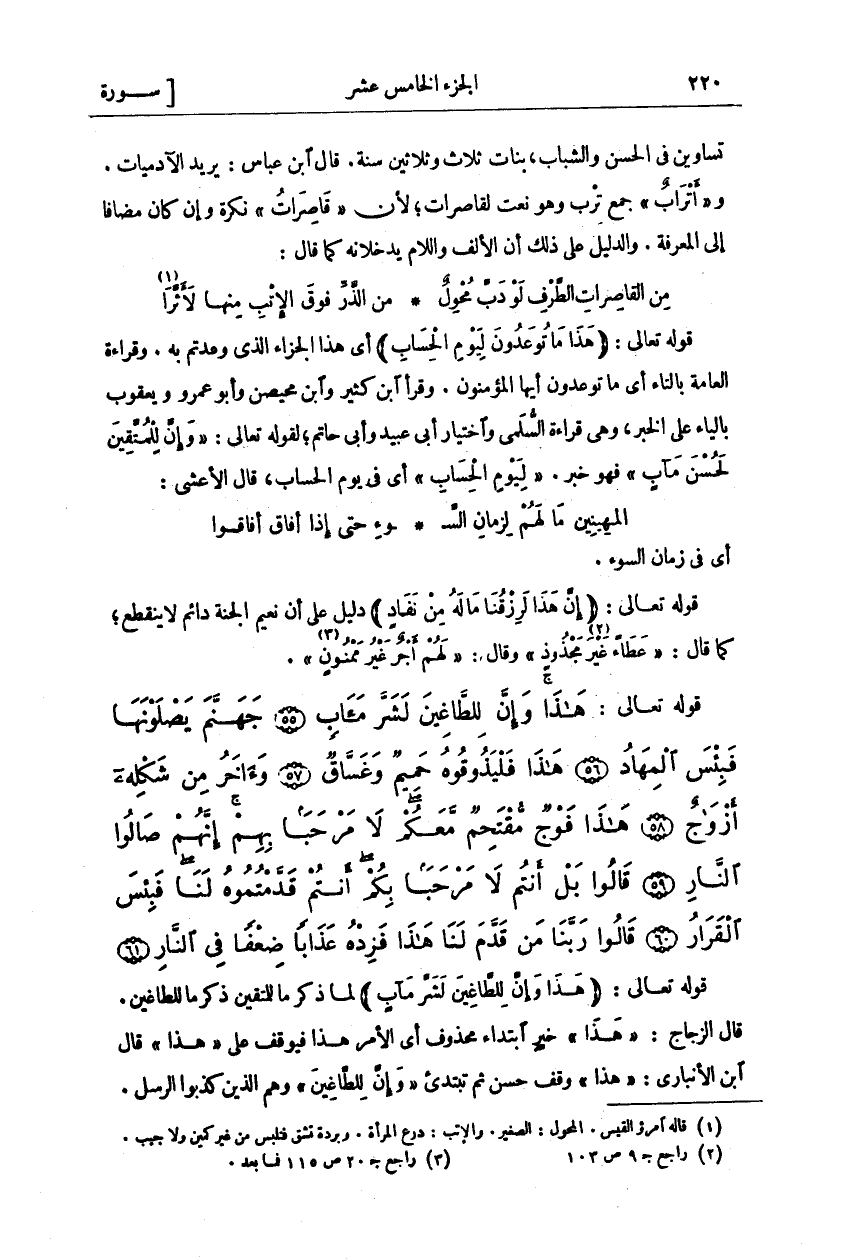 ٢٢٠ الجزء الخامس عشر [ ســـورة
تساوين فى الحسن والشباب، بنات ثلاث وثلاثين سنة. قال آبن عباس: يريد الآدميات.
و«أَتْرَابٌ» جمع تِرْب وهو نعت لقاصرات؛ لأن «قَاصِرَاتُ» نكرة وإن كان مضافا
إلى المعرفة. والدليل على ذلك أن الألف واللام يدخلانه كما قال:
مِن القاصراتِ الطَّرْفِ لَوْ دَبَّ مُحْوِلٌ * من الذَّرِّ فوقَ الإتْبِ مِنها لَأَثَّرَا (١)
قوله تعالى: ﴿هَذَا مَا تُوعَدُونَ لِيَوْمِ الْحِسَابِ﴾ أى هذا الجزاء الذى وعدتم به. وقراءة
العامة بالتاء أى ما توعدون أيها المؤمنون. وقرأ آبن كثير وآبن محيصن وأبو عمرو ويعقوب
بالياء على الخبر، وهى قراءة السُّلَمى وآختيار أبى عبيد وأبى حاتم؛ لقوله تعالى: «وَإِنَّ لِلْمُتَّقِينَ
لَحُسْنَ مَآبٍ» فهو خبر. «لِيَوْمِ الْحِسَابِ» أى فى يوم الحساب، قال الأعشى:
المهينين مَا لَهُمْ لِزمانِ السَّـ * ـوءِ حتى إذا أفاق أفاقـوا
أى فى زمان السوء.
قوله تعـالى: ﴿إِنَّ هَذَا لَرِزْقُنَا مَالَهُ مِنْ نَفَادٍ﴾ دليل على أن نعيم الجنة دائم لاينقطع؛
كما قال: «عَطَاءً غَيْرَ مَجْذُوذٍ» (٢) وقال: «لَهُمْ أَجْرٌ غَيْرُ مَمْنُونٍ» (٣).
قوله تعـالى: هَـٰذَا وَإِنَّ لِلطَّاغِينَ لَشَرَّ مَـَٔابٍ ٥٥ جَهَنَّمَ يَصْلَوْنَهَا
فَبِئْسَ ٱلْمِهَادُ ٥٦ هَـٰذَا فَلْيَذُوقُوهُ حَمِيمٌ وَغَسَّاقٌ ٥٧ وَءَاخَرُ مِن شَكْلِهِۦٓ
أَزْوَٰجٌ ٥٨ هَـٰذَا فَوْجٌ مُّقْتَحِمٌ مَّعَكُمْ لَا مَرْحَبًا بِهِمْ إِنَّهُمْ صَالُوا
ٱلنَّارِ ٥٩ قَالُوا بَلْ أَنتُمْ لَا مَرْحَبًا بِكُمْ أَنتُمْ قَدَّمْتُمُوهُ لَنَا فَبِئْسَ
ٱلْقَرَارُ ٦٠ قَالُوا رَبَّنَا مَن قَدَّمَ لَنَا هَـٰذَا فَزِدْهُ عَذَابًا ضِعْفًا فِى ٱلنَّارِ ٦١
قوله تعـالى: ﴿هَـذَا وَإِنَّ لِلطَّاغِينَ لَشَرَّ مَآبٍ﴾ لمـا ذكر ما للتقين ذكر ما للطاغين.
قال الزجاج: «هَـذَا» خبر آبتداء محذوف أى الأمر هـذا فيوقف على «هـذا» قال
آبن الأنبارى: «هذا» وقف حسن ثم تبتدئ «وَإِنَّ لِلطَّاغِينَ» وهم الذين كذبوا الرسل.
(١) قاله آمرؤ القيس. المحول: الصغير. والإتب: درع المرأة. وبردة تشق فتلبس من غير كمين ولا جيب.
(٢) راجع جـ ٩ ص ١٠٣ (٣) راجع جـ ٢٠ ص ١١٥ فما بعد.